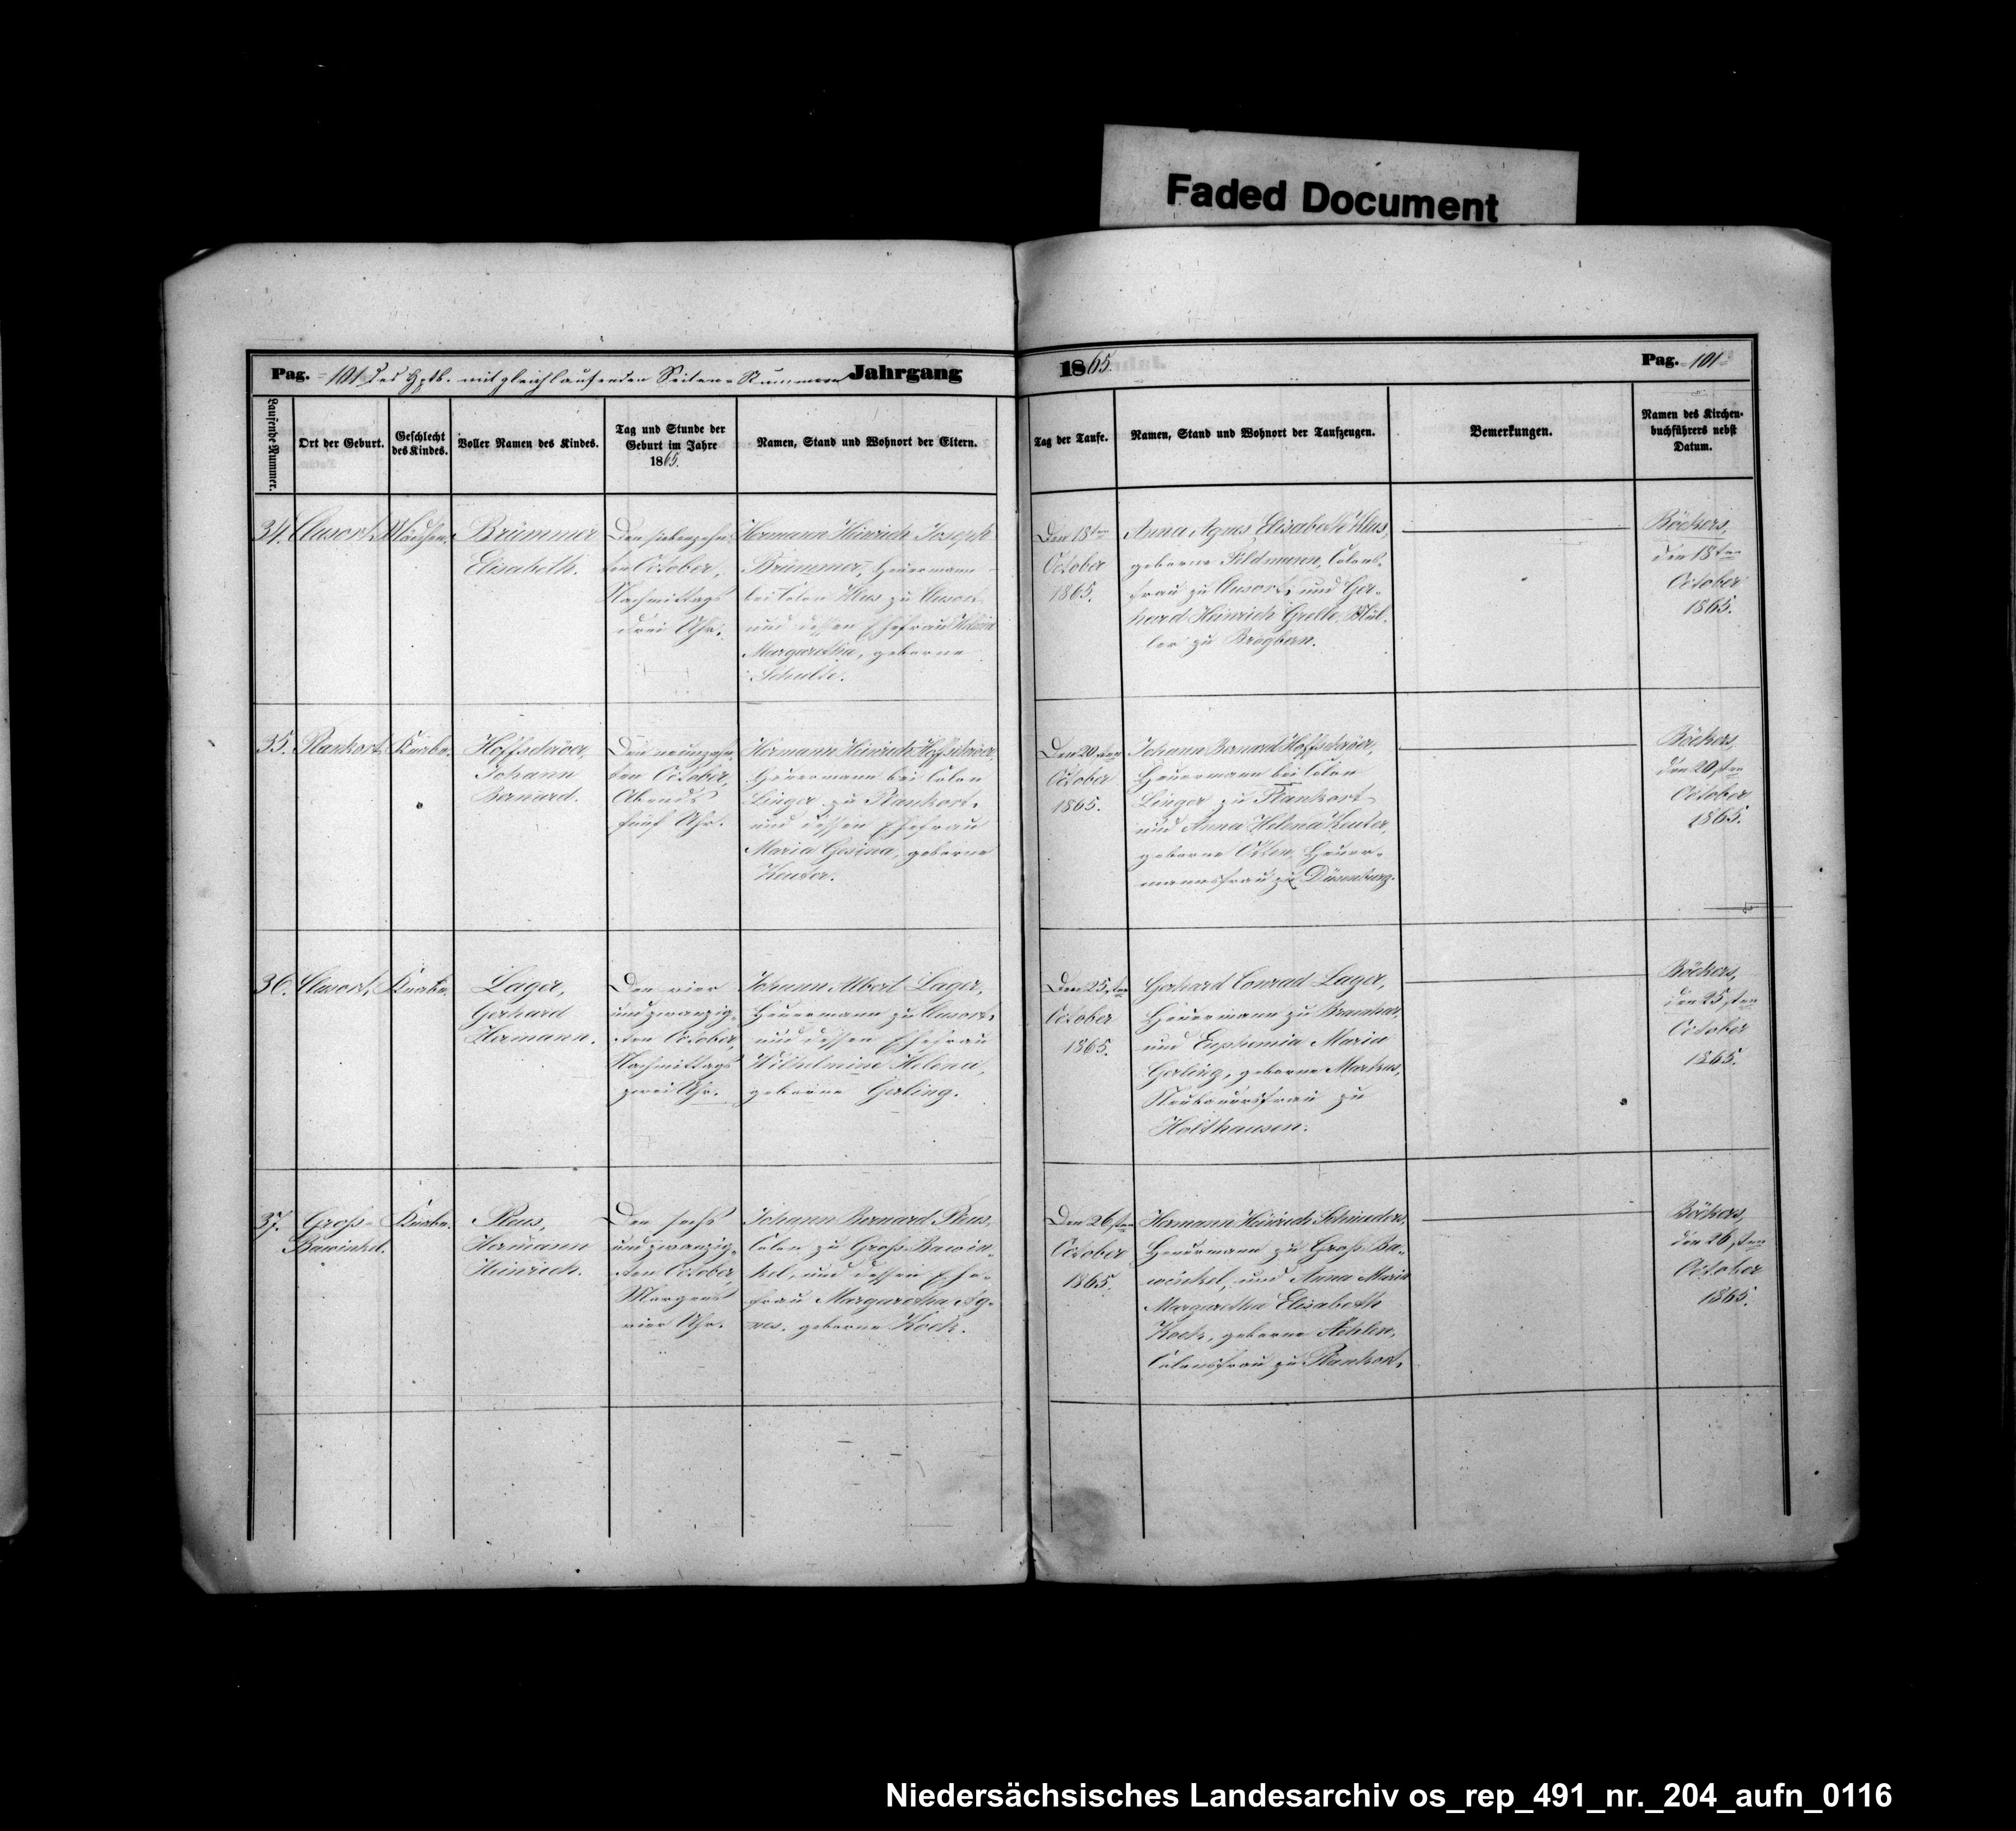 Faded Document
Pag. 101 des Hptb. mit gleichlaufenden Seiten-Nummern Jahrgang 1865. Pag. 101
Laufende Nummer.
Ort der Geburt.
Geschlecht
des Kindes.
Voller Namen des Kindes.
Tag und Stunde der
Geburt im Jahre
1865.
Namen, Stand und Wohnort der Eltern.
Tag der Taufe.
Namen, Stand und Wohnort der Taufzeugen.
Bemerkungen.
Namen des Kirchen-
buchführers nebst
Datum.
34.
Clusort,
Mädchen.
Brümmer
Elisabeth.
Den siebenzehn-
ten October,
Nachmittags
drei Uhr.
Hermann Heinrich Joseph
Brümmer, Heuermann
bei Colon Klus zu Clusort
und dessen Ehefrau Maria
Margaretha, geborne
Schulte.
Den 18ten
October
1865.
Anna Agnes Elisabeth Klus,
geborne Feldmann, Colons-
frau zu Clusort, und Ger-
hard Heinrich Grelle, Mül-
ler zu Brögbern.
Böckers,
den 18ten
October
1865.
35.
Plankort
Knabe.
Hoffschröer,
Johann
Bernard.
Den neunzehn-
ten October,
Abends
fünf Uhr.
Hermann Heinrich Hoffschröer,
Heuermann bei Colon
Linger zu Plankort,
und dessen Ehefrau
Maria Gesina, geborne
Keuter.
Den 20sten
October
1865.
Johann Bernard Hoffschröer,
Heuermann bei Colon
Linger zu Plankort
und Anna Helena Keuter,
geborne Otten, Heuer-
mannsfrau zu Düsenburg.
Böckers,
den 20sten
October
1865.
36.
Clusort,
Knabe.
Lager,
Gerhard
Hermann.
Den vier
und zwanzig-
sten October,
Nachmittags
zwei Uhr.
Johann Albert Lager,
Heuermann zu Clusort,
und dessen Ehefrau
Wilhelmine Helena,
geborne Gerling.
Den 25sten
October
1865.
Gerhard Conrad Lager,
Heuermann zu Bramhar,
und Euphemia Maria
Gerling, geborne Markus,
Neubauersfrau zu
Holthausen.
Böckers,
den 25sten
October
1865.
37.
Groß-
Bawinkel.
Knabe.
Reus,
Hermann
Heinrich.
Den sechs
und zwanzig-
sten October,
Morgens
vier Uhr.
Johann Bernard Reus,
Colon zu Groß-Bawin-
kel, und dessen Ehe-
frau Margaretha Ag-
nes, geborne Kock.
Den 26sten
October
1865.
Hermann Heinrich Schnieders,
Heuermann zu Groß-Ba-
winkel, und Anna Maria
Margaretha Elisabeth
Kock, geborne Fehlen,
Colonsfrau zu Plankort.
Böckers,
den 26sten
October
1865.
Niedersächsisches Landesarchiv os_rep_491_nr._204_aufn_0116